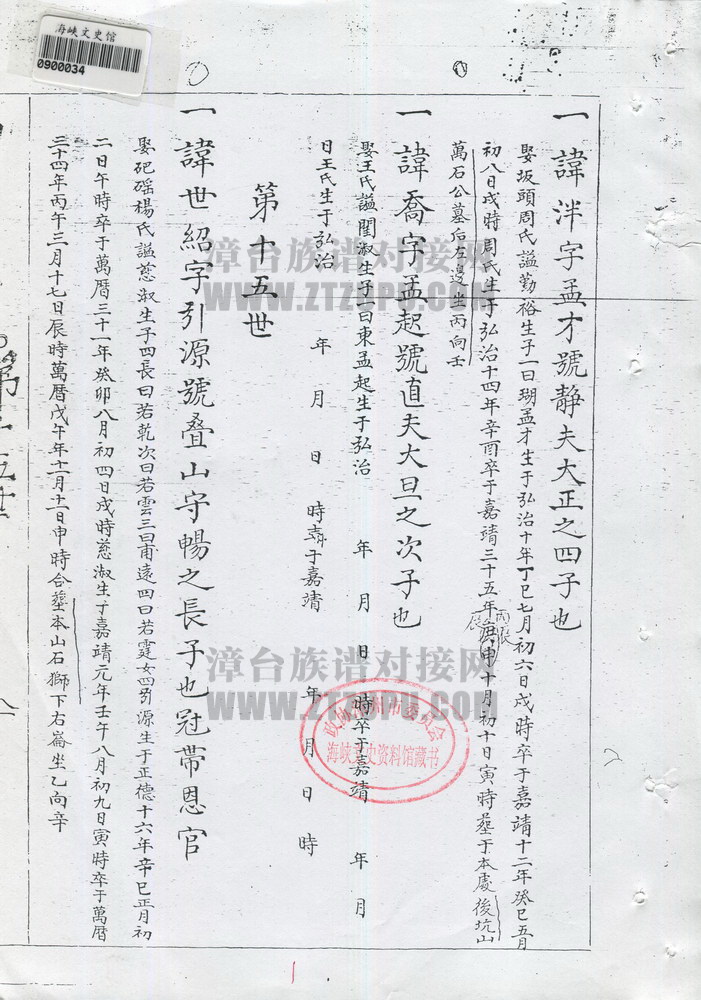 海峡文史馆
0900034
一諱泮字孟才號靜夫大正之四子也
娶坂頭周氏謚勤裕生子一曰瑚孟才生于弘治十年丁巳七月初六日戌時卒于嘉靖十二年癸巳五月
初八日戌時周氏生于弘治十四年辛酉卒于嘉靖三十五年庚申十月初十日寅時塟于本處後坑山
丙辰
萬石公墓后左邊坐丙向壬
一諱喬字孟起號直夫大旦之次子也
娶王氏謚閨淑生子一曰東孟起生于弘治 年 月 日 時卒于嘉靖 年 月
日王氏生于弘治 年 月 日 時卒于嘉靖 年 月 日 時
第十五世
一諱世紹字引源號叠山守暢之長子也冠帶恩官
娶磘楊氏謚慈淑生子四長曰若乾次曰若雲三曰甫遠四曰若霆女四引源生于正德十六年辛巳正月初
二日午時卒于萬曆三十一年癸卯八月初四日戌時慈淑生于嘉靖元年壬午八月初九日寅時卒于萬曆
三十四年丙午三月十七日辰時萬曆戊午年十二月十二日申時合塟本山石獅下右崙坐乙向辛
漳台族谱对接网
WWW.ZTZUPU.COM
漳台族谱对接网
WWW.ZTZUPU.COM
政协漳州市委员会
海峡文史资料馆藏书
1